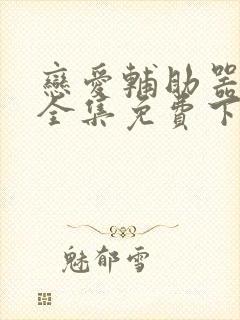 戀愛輔助器
全集免費下
魅郁雪